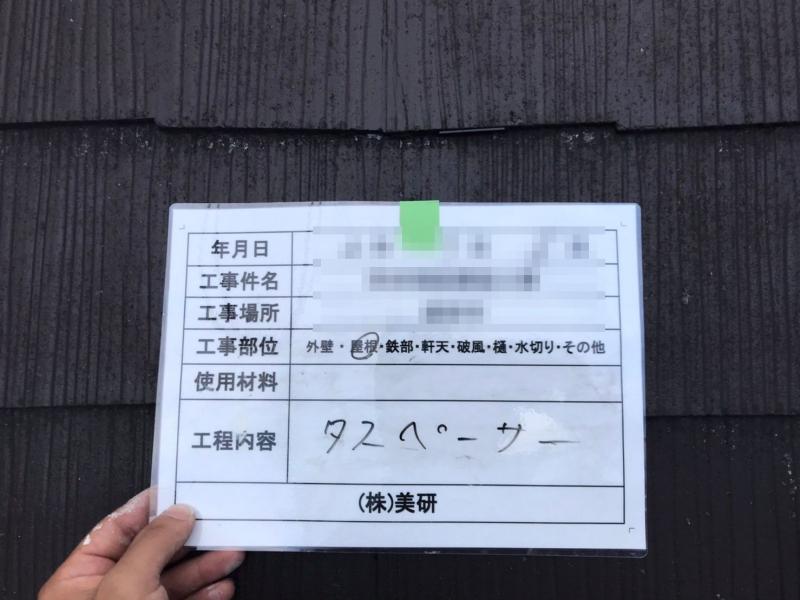 年月日
工事件名
工事場所
工事部位 外壁・屋根・鉄部・軒天・破風・樋・水切り・その他
使用材料
工程内容 タスペーサー
(株)美研